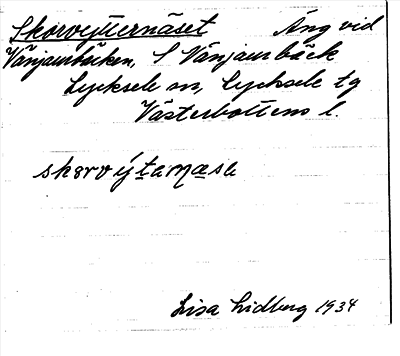 Skorvytternäset Äng vid
Vänjaurbäcken, S Vänjaurbäck
Lycksele sn, Lycksele tg
Västerbottens l.
skɜrvýtanasɛ
Lisa Lidberg 1934